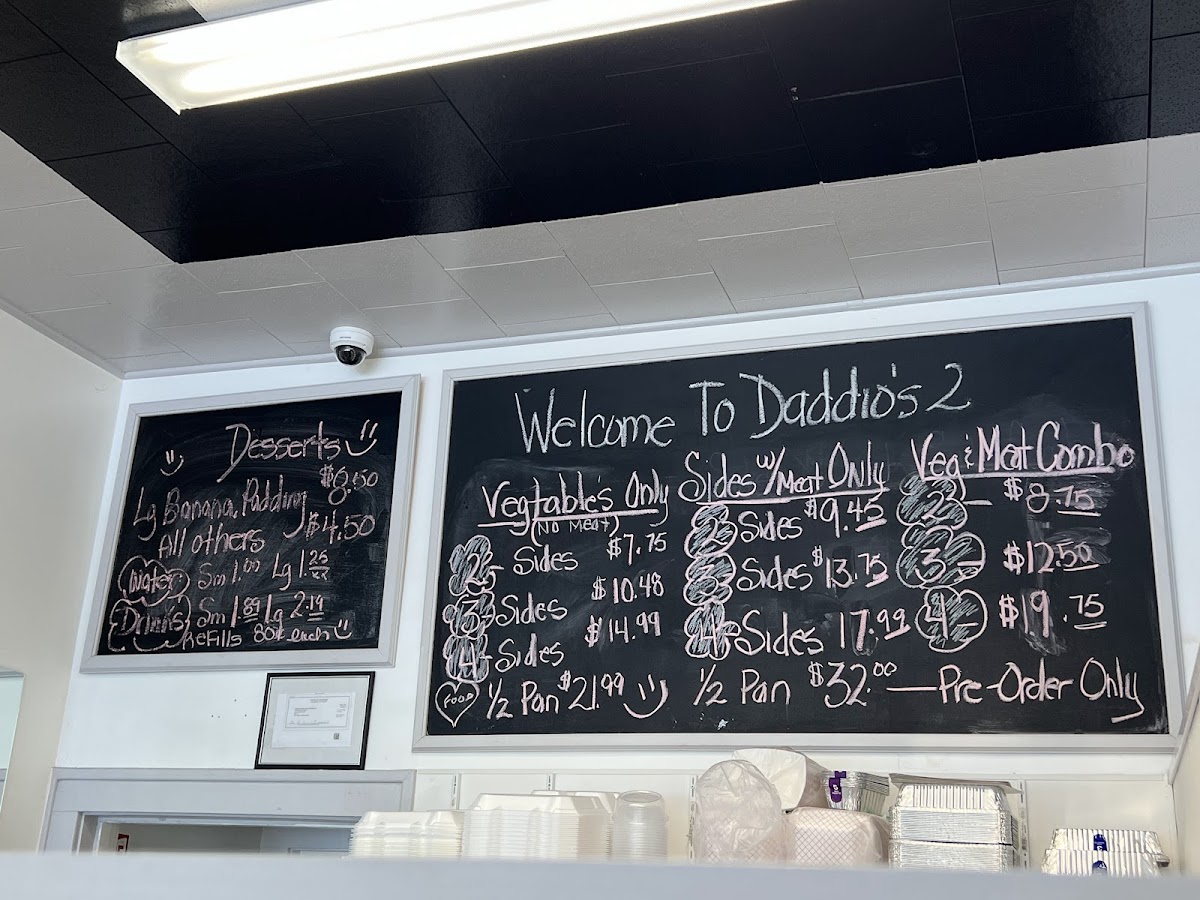 Desserts
$6.50
Lg Banana Pudding
All others $4.50
Water Sm 1.00 Lg 1.25
Drinks Sm 1.89 Lg 2.19
Refills 80¢ each
Welcome To Daddio's 2
Vegtable's Only
(No Meat)
2 Sides $7.75
3 Sides $10.48
4 Sides $14.99
FOOD 1/2 Pan $21.99
Sides w/Meat Only
2 Sides $9.45
3 Sides $13.75
4 Sides 17.99
1/2 Pan $32.00 — Pre-Order Only
Veg & Meat Combo
2 - $8.75
3 - $12.50
4 - $19.75